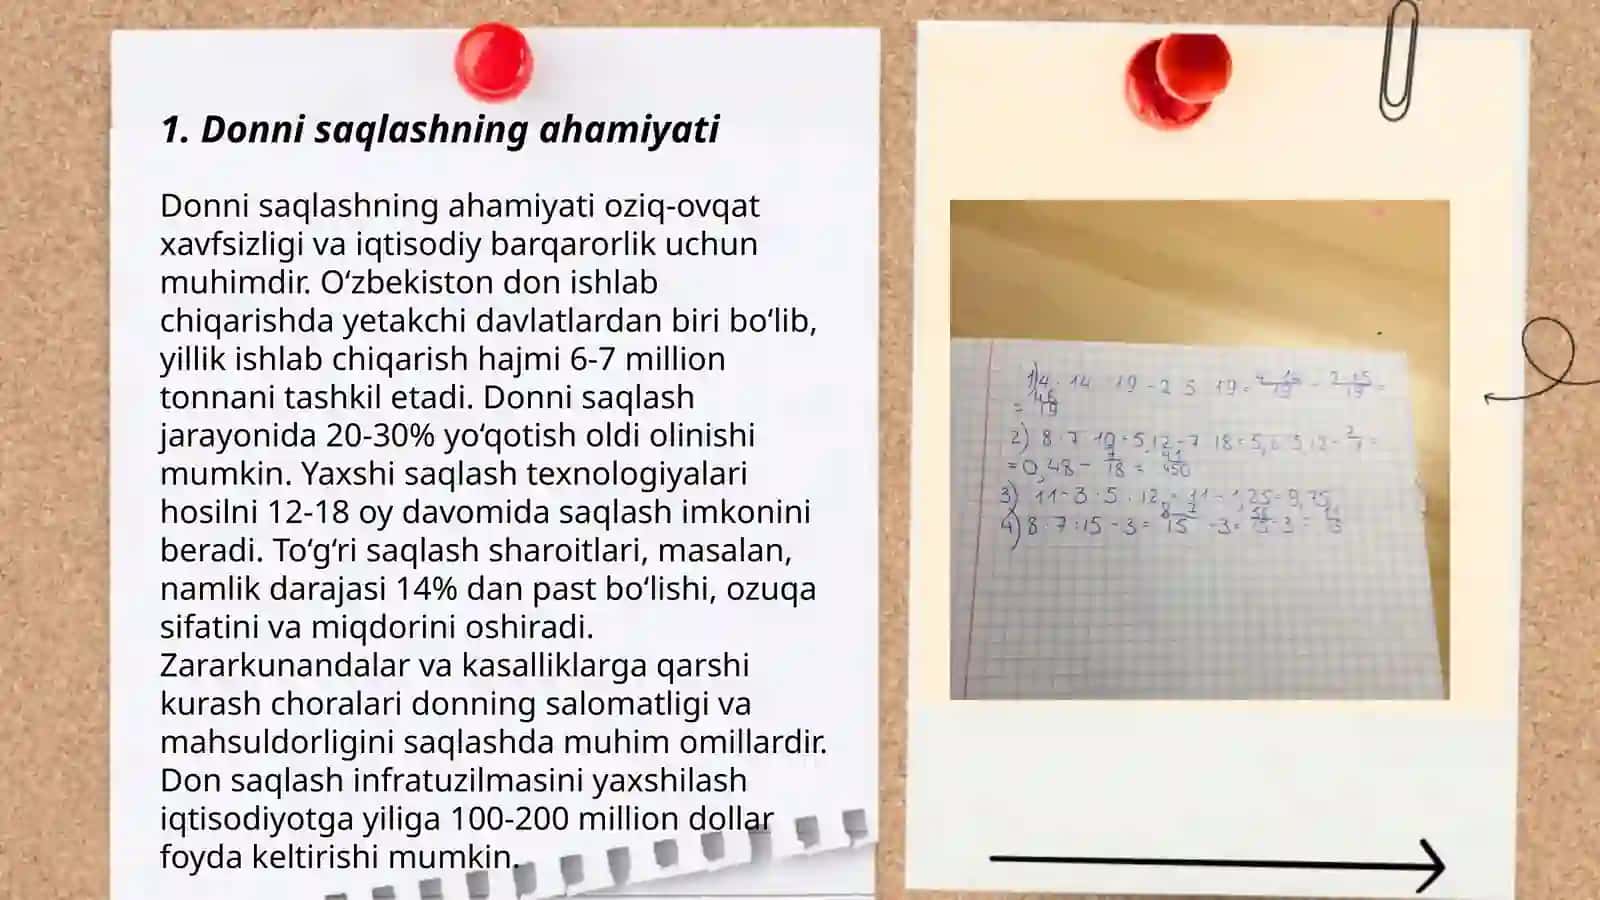 1. Donni saqlashning ahamiyati
Donni saqlashning ahamiyati oziq-ovqat
xavfsizligi va iqtisodiy barqarorlik uchun
muhimdir. O‘zbekiston don ishlab
chiqarishda yetakchi davlatlardan biri bo‘lib,
yillik ishlab chiqarish hajmi 6-7 million
tonnani tashkil etadi. Donni saqlash
jarayonida 20-30% yo‘qotish oldi olinishi
mumkin. Yaxshi saqlash texnologiyalari
hosilni 12-18 oy davomida saqlash imkonini
beradi. To‘g‘ri saqlash sharoitlari, masalan,
namlik darajasi 14% dan past bo‘lishi, ozuqa
sifatini va miqdorini oshiradi.
Zararkunandalar va kasalliklarga qarshi
kurash choralari donning salomatligi va
mahsuldorligini saqlashda muhim omillardir.
Don saqlash infratuzilmasini yaxshilash
iqtisodiyotga yiliga 100-200 million dollar
foyda keltirishi mumkin.
1)
2) 8
= 0,48 -
3) 11 - 3 · 5 · 12 = 11 - 1,25 = 9,75
4) 8 · 7 : 15 - 3 =